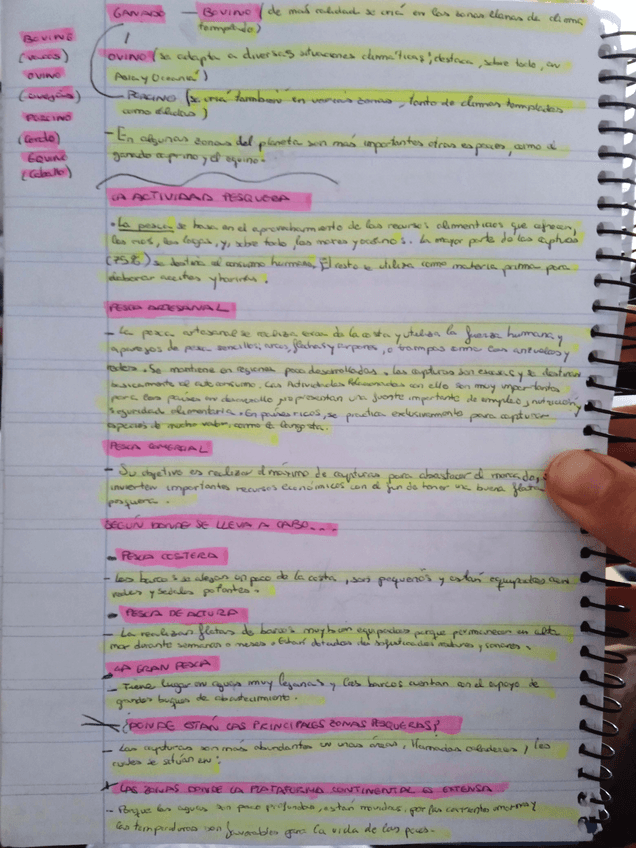 GANADO - BOVINO (de más calidad se cría en las zonas llanas de clima
templado)
BOVINO
(vacas)
OVINO
(ovejas)
PORCINO
(Cerdo)
EQUINO
(Caballo)
OVINO (se adapta a diversas situaciones climáticas; destaca, sobre todo, en
Asia y Oceanía)
PORCINO (se cría también en varias zonas, tanto de climas templados
como cálidos)
- En algunas zonas del planeta son más importantes otras especies, como el
ganado caprino y el equino.
LA ACTIVIDAD PESQUERA
• La pesca se basa en el aprovechamiento de los recursos alimenticios que ofrecen
los ríos, los lagos, y, sobre todo, los mares y océanos. La mayor parte de las capturas
(75%) se destina al consumo humano. El resto se utiliza como materia prima para
elaborar aceites y harinas.
PESCA ARTESANAL
- La pesca artesanal se realiza cerca de la costa y utiliza la fuerza humana y
aparejos de pesca sencillos; arcos, flechas y arpones, o trampas como con anzuelos y
redes. Se mantiene en regiones poco desarrolladas. Las capturas son escasas y se destinan
básicamente al autoconsumo. Las Actividades relacionadas con ello son muy importantes
para los países en desarrollo, representan una fuente importante de empleo, nutrición y
seguridad alimentaria. En países ricos, se practica exclusivamente para capturar
especies de mucho valor, como la langosta.
PESCA COMERCIAL
- Su objetivo es realizar el máximo de capturas para abastecer el mercado,
invierten importantes recursos económicos con el fin de tener una buena flota
pesquera.
SEGÚN DONDE SE LLEVA A CABO...
• PESCA COSTERA
- Los barcos se alejan un poco de la costa, son pequeños y están equipados con
redes y sedales potentes.
• PESCA DE ALTURA
- La realizan flotas de barcos muy bien equipados porque permanecen en alta
mar durante semanas o meses. Están dotados de sofisticados radares y sonares.
• LA GRAN PESCA
- Tiene lugar en aguas muy lejanas y los barcos cuentan con el apoyo de
grandes buques de abastecimiento.
¿DONDE ESTÁN LAS PRINCIPALES ZONAS PESQUERAS?
- Las capturas son más abundantes en unas áreas, llamadas caladeros, los
cuales se sitúan en:
LAS ZONAS DONDE LA PLATAFORMA CONTINENTAL ES EXTENSA
- Porque las aguas son poco profundas, están movidas por las corrientes marinas y
las temperaturas son favorables para la vida de los peces.